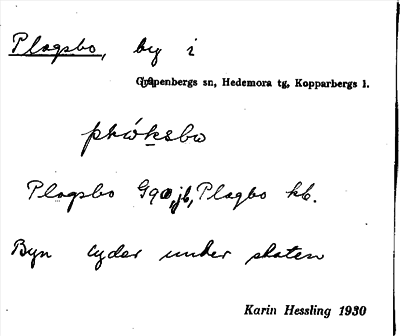 Plogsbo, by i
Garpenbergs sn, Hedemora tg, Kopparbergs l.
Plogsbo G90, jb, Plogbo kb.
Byn lyder under skaten
Karin Hessling 1930